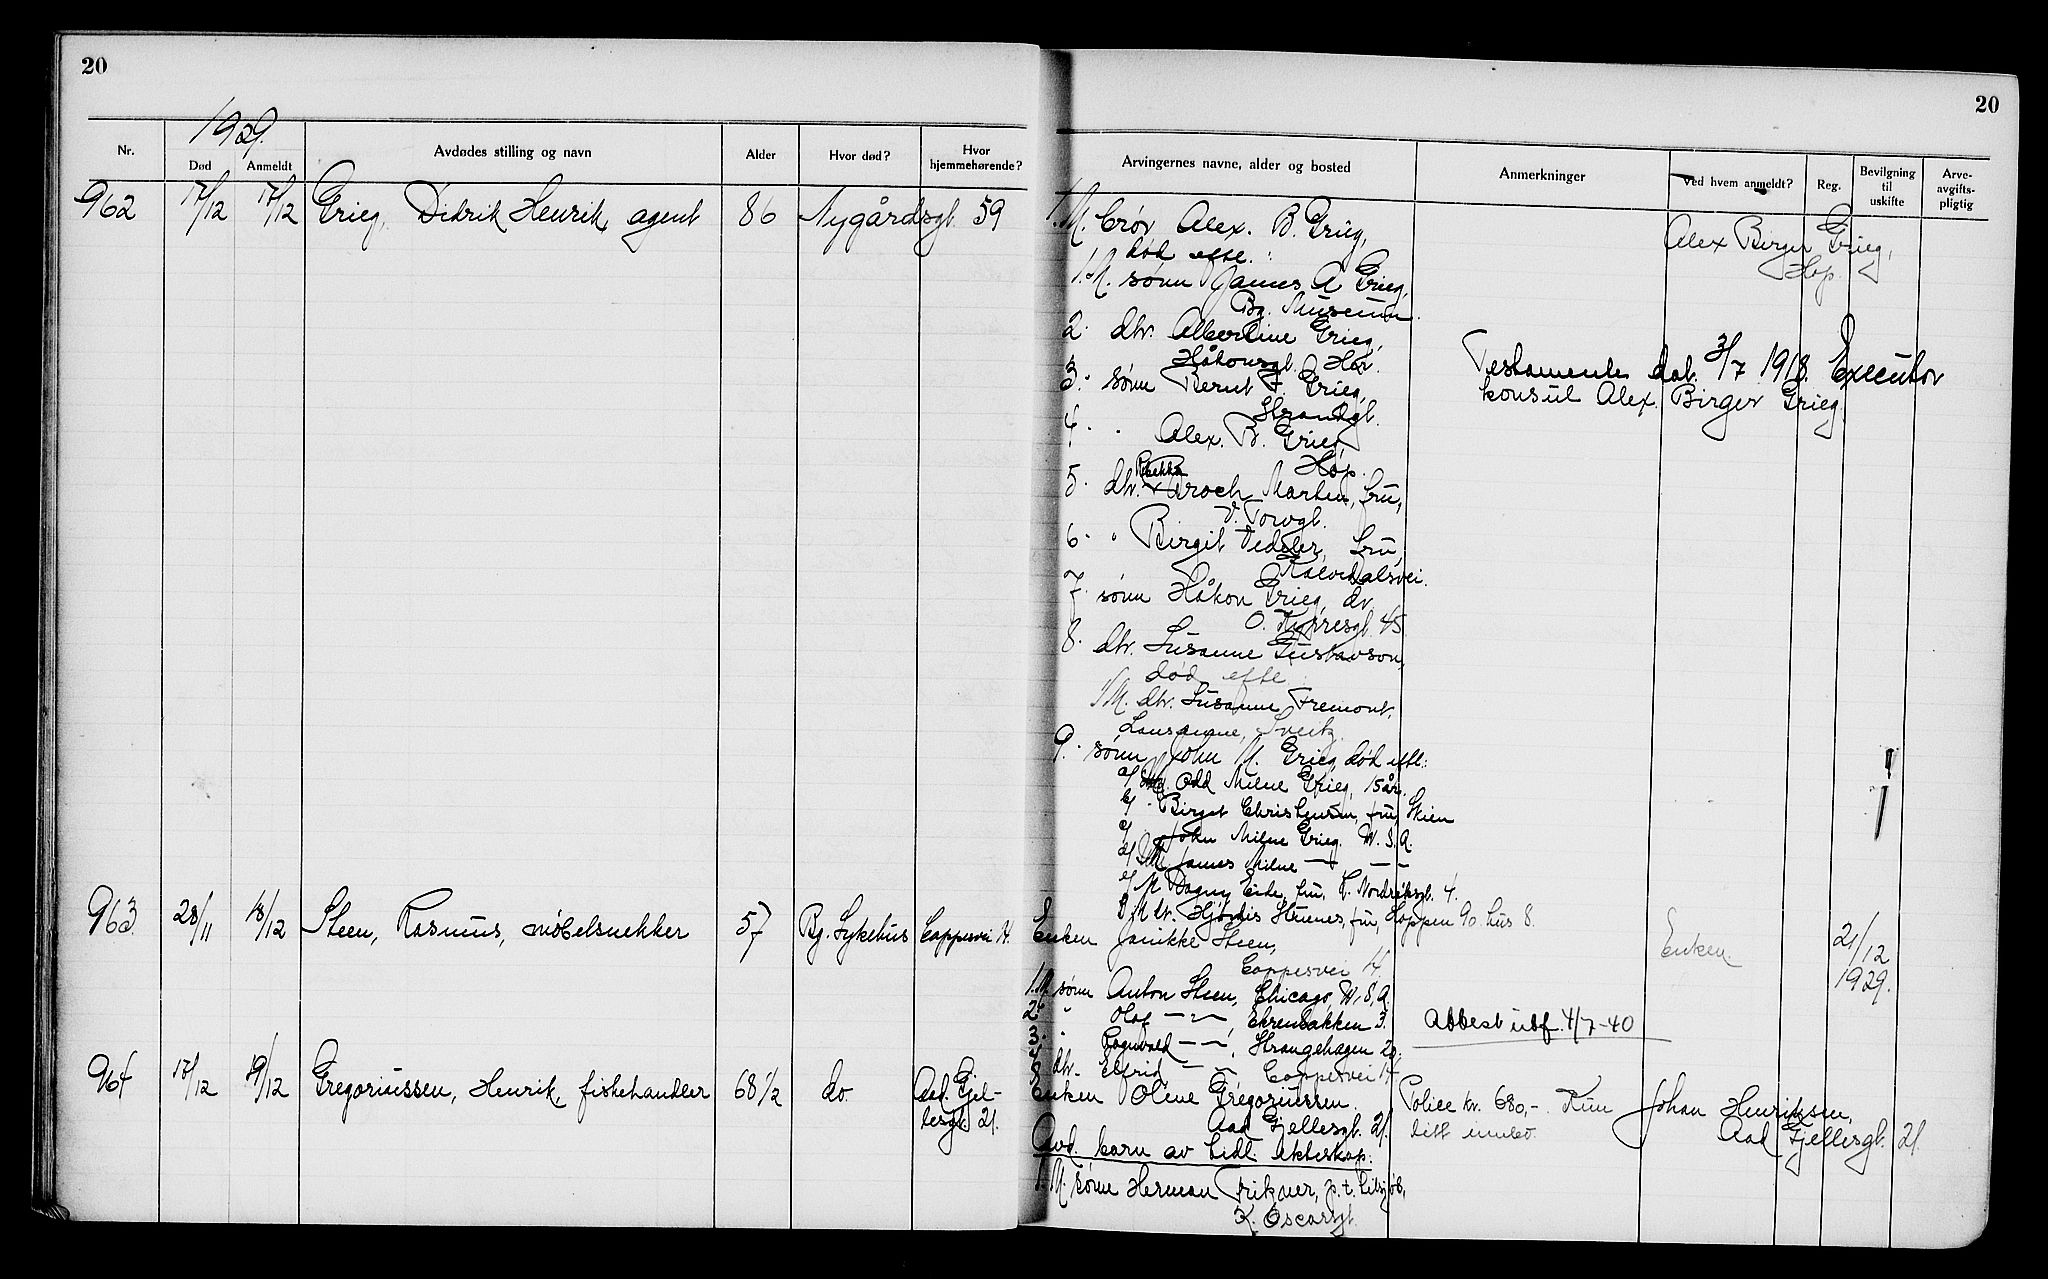 20
20
1929.
Nr.
Død
Anmeldt
Avdødes stilling og navn
Alder
Hvor død?
Hvor hjemmehørende?
Arvingernes navne, alder og bosted
Anmerkninger
Ved hvem anmeldt?
Reg.
Bevilgning til uskifte
Arve-avgifts-pligtig
962 17/12 17/12 Grieg, Didrik Henrik, agent 86 Nygårdsgt. 59
1. M. brór Alex. B. Grieg,
død eftl.:
1. M. sønn James A Grieg,
Bg. Museum.
2. dtr. Albertine Grieg,
Håkonsgt.
3. sønn Bernt Grieg,
Strandgt.
4. " Alex. B. Grieg,
Hop.
5. dtr. Martens, fru,
V. Torvgt.
6. " Birgit Dedeler, fru,
Kalvedalsvei.
7. sønn Håkon Grieg, dr.
45
8. dtr. Susanne Gustavson,
død eftl.
1 M. dtr. Susanne Fremont,
Lausanne, Sveitz.
9. sønn John M. Grieg, død eftl:
a/ Odd Milne Grieg, 15 år.
b/ " Birgit Christensen, fru, Skien
c/ John Milne Grieg. U. S. A.
d/ M James Milne — " — — —
e/ M Dagny Eide, fru,
M dtr. Hjørdis fru, Loppen 90 hus 8.
Alex Birger Grieg,
Hop.
Testamente dat. 3/7 1918. Executor
konsul Alex. Birger Grieg.
963 28/11 18/12 Steen, Rasmus, møbelsnekker 57 Bg. Sykehus Cappesvei 14.
Enken Janikke Steen,
Cappesvei 14.
1. M. sønn Anton Steen, Chicago, U. S. A.
2. " Olaf — " —, Ehrenbakken 3.
3. " Ragnvald — " —, Strangehagen 20.
4. dtr. Elfrid, — " — Cappesvei 14
Attest utf. 4/7-40
Enken.
21/12
1929.
964 17/12 19/12 Gregoriussen, Henrik, fiskehandler 68 1/2 do. Aad. Gjel-
lesgt. 21.
Enken Oline Gregoriussen.
Aad Gjellesgt. 21.
Avd. barn av tidl. ekteskap:
1. M. sønn Herman p. t. tilsjøs,
K. Oscarsgt.
Police kr. 680,-. Kun
litt innbo.
Johan Henriksen,
Aad Gjellesgt. 21.